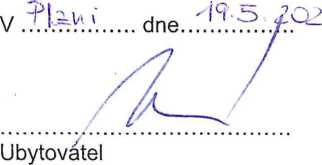 V Plzni dne 19.5.202
Ubytovatel